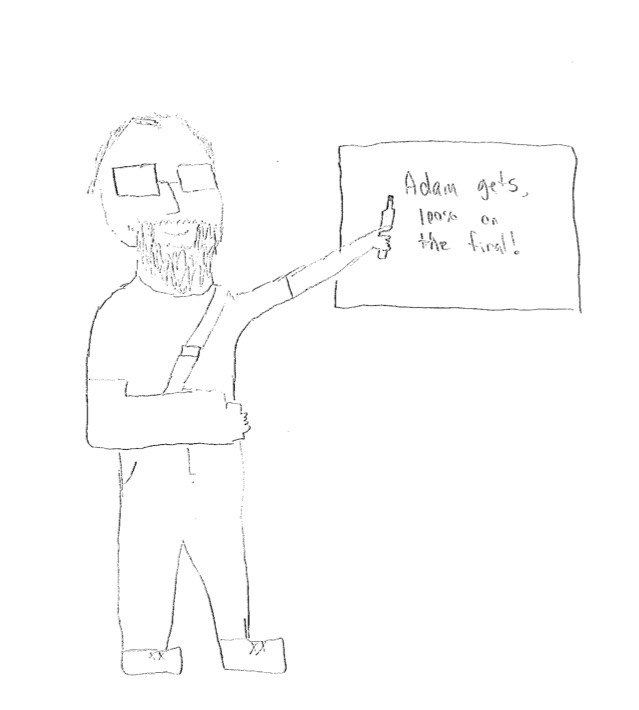 Adam gets,
100% on
the final!